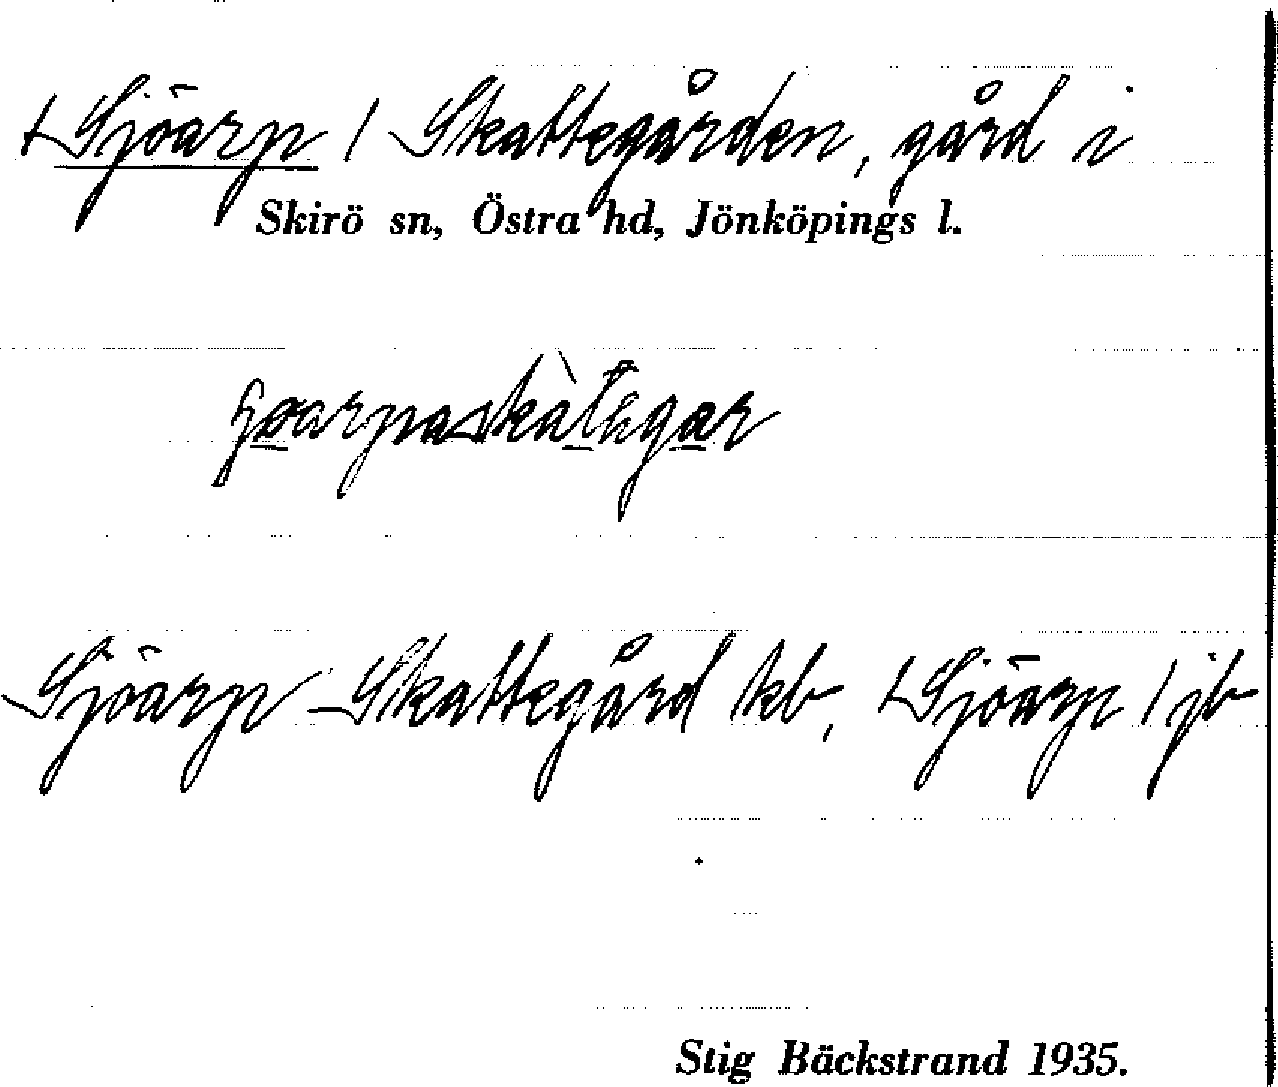 (Sjöarp) Skattegården, gård i
Skirö sn, Östra hd, Jönköpings l.
Sjöarp Skattegård kb, (Sjöarp) jb
Stig Bäckstrand 1935.